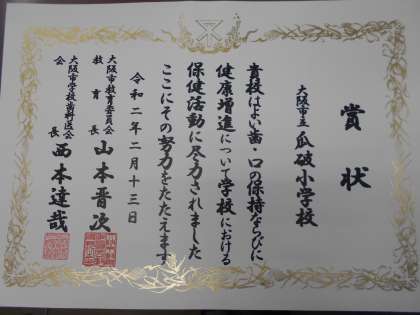 賞状
大阪市立 瓜破小学校
貴校はよい歯・口の保持ならびに
健康増進について学校における
保健活動に尽力されました
ここにその努力をたたえます
令和二年二月十三日
大阪市教育委員会
教育長 山本晋次
大阪市学校歯科医会
会長 西本達哉